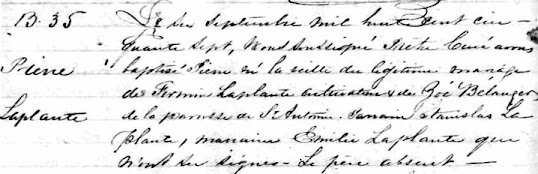 B. 35
Pierre
Laplante
Le six Septembre mil huit Cent cin-
quante sept, Nous Soussigné Prêtre Curé avons
baptisé Pierre né la veille du légitime mariage
de Firmin Laplante cultivateur & de Zoé Bélanger
de la paroisse de St Antoine. Parrain Stanislas La
plante, marraine Emilie Laplante qui
n'ont su signer - Le père absent -